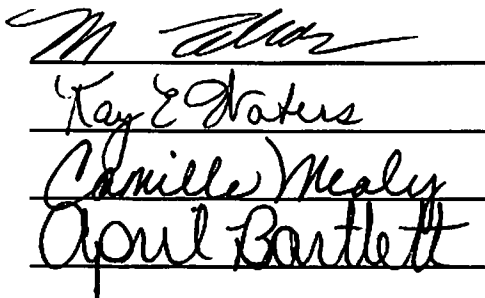 M
Kay E Waters
Camille Mealy
April Bartlett